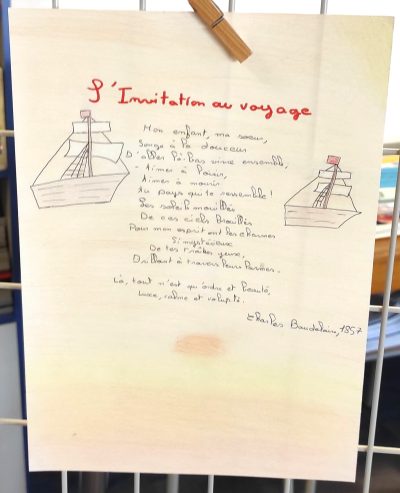 L'Invitation au voyage
Mon enfant, ma sœur,
Songe à la douceur
D'aller là-bas vivre ensemble,
- Aimer à loisir,
Aimer à mourir
Au pays qui te ressemble !
Les soleils mouillés
De ces ciels Brouillés
Pour mon esprit ont les charmes
Si mystérieux
De tes traîtres yeux,
Brillant à travers leurs larmes.
Là, tout n'est qu'ordre et beauté,
Luxe, calme et volupté.
Charles Baudelaire, 1857